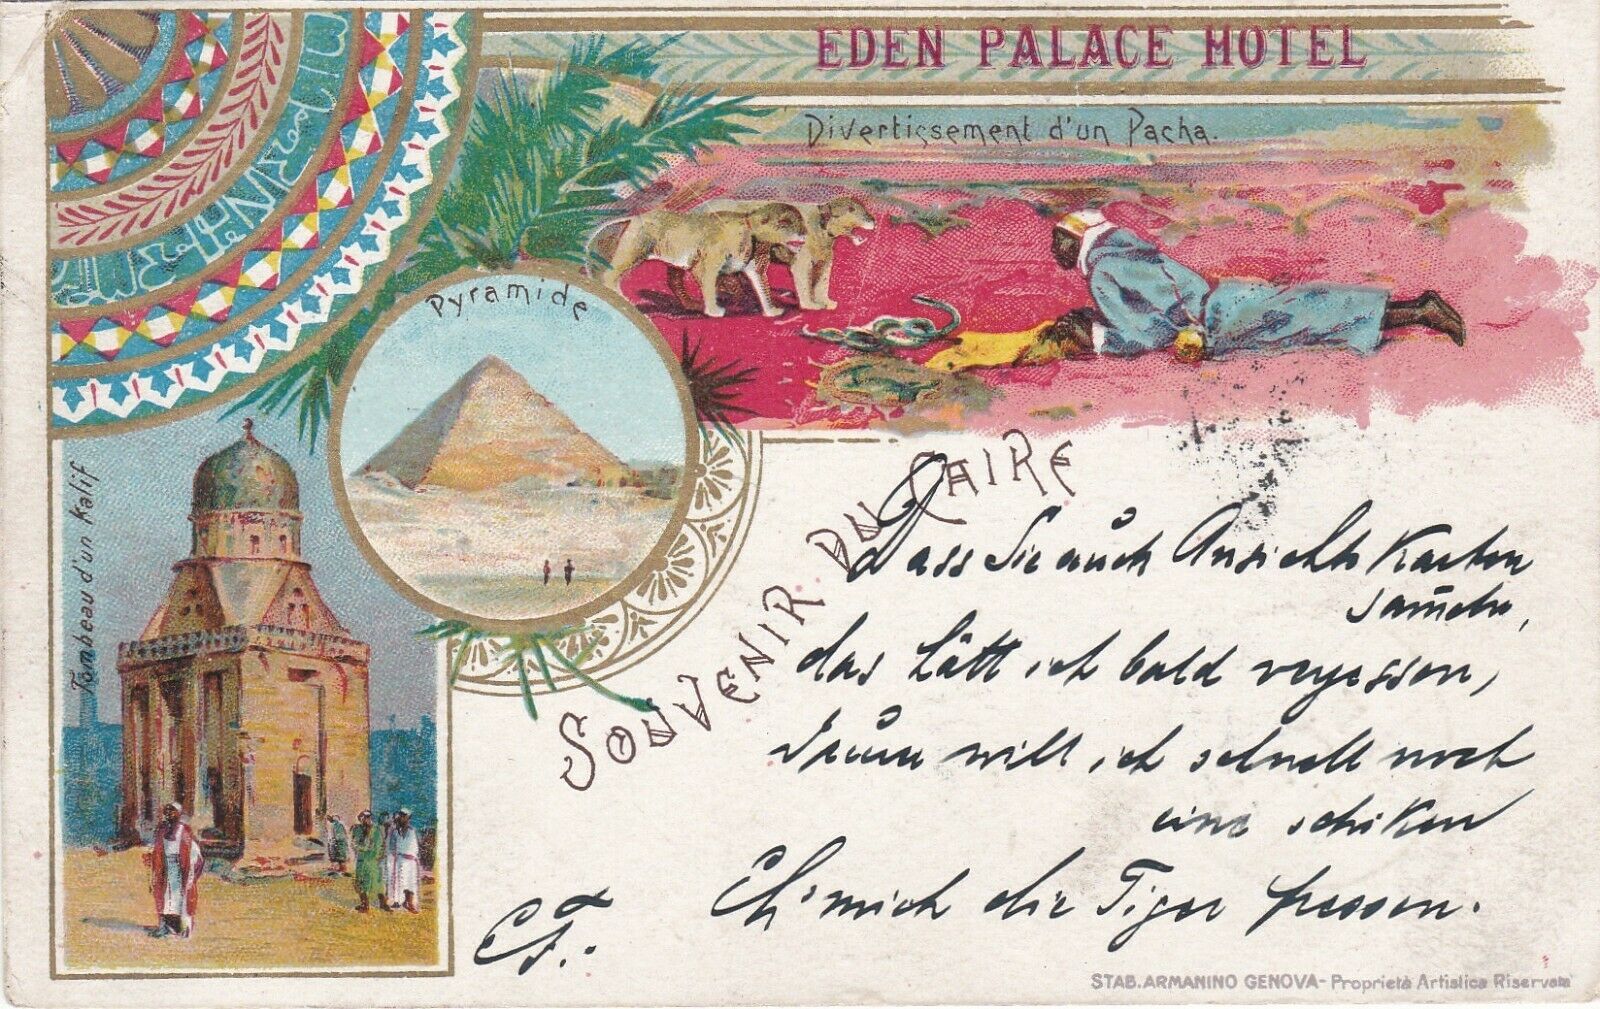 EDEN PALACE HOTEL
Divertissement d'un Pacha.
Pyramide
Tombeau d'un Kalif
SOUVENIR DU CAIRE
Dass Sie auch Ansichtskarten
sam̄eln,
das hätt ich bald vergessen,
Drum will ich schnell noch
eine schiken
Eh' mich die Tiger fressen.
CF.
STAB. ARMANINO GENOVA - Proprietà Artistica Riservata